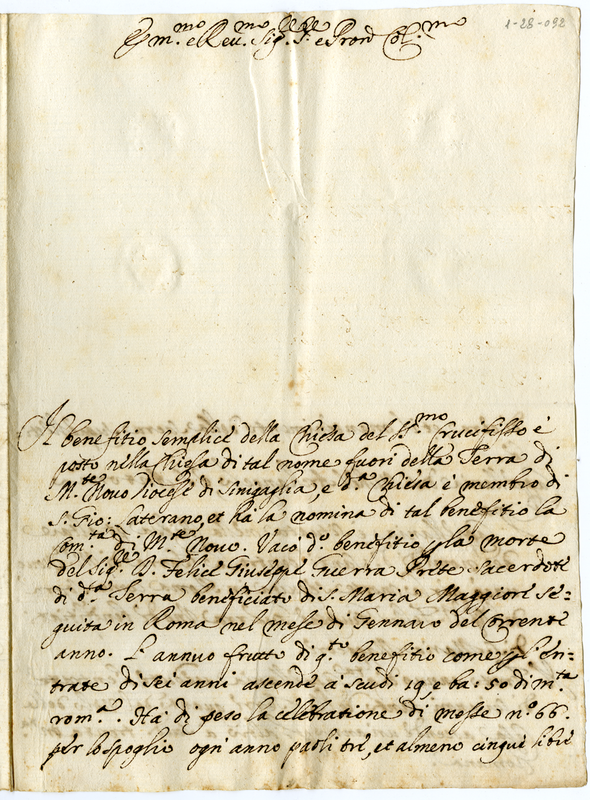 1-28-092
Em.mo e Reu.mo Sig.re P.re e Pron Col.mo
Il benefitio semplice della Chiesa del S.mo Crucifisso è
posto nella Chiesa di tal nome fuori della Terra di
M.te Novo diocesi di Sinigaglia, e d.a Chiesa è membro di
S. Gio: Laterano, et ha la nomina di tal benefitio la
Com.tà di M.te Novo. Vacò d.o benefitio p la morte
del Sig.r D. Felice Giuseppe Guerra Prete sacerdote
di d.a Terra beneficiato di S. Maria Maggiore se=
guita in Roma nel mese di Gennaro del corrente
anno. L'annuo frutto di q.to benefitio come p l'en=
trate di sei anni ascende à scudi 19, e ba: 50 di m.ta
rom.a. Hà di peso la celebratione di messe n.o 66.
per lo spoglio ogni anno paoli trè, et almeno cinque libre